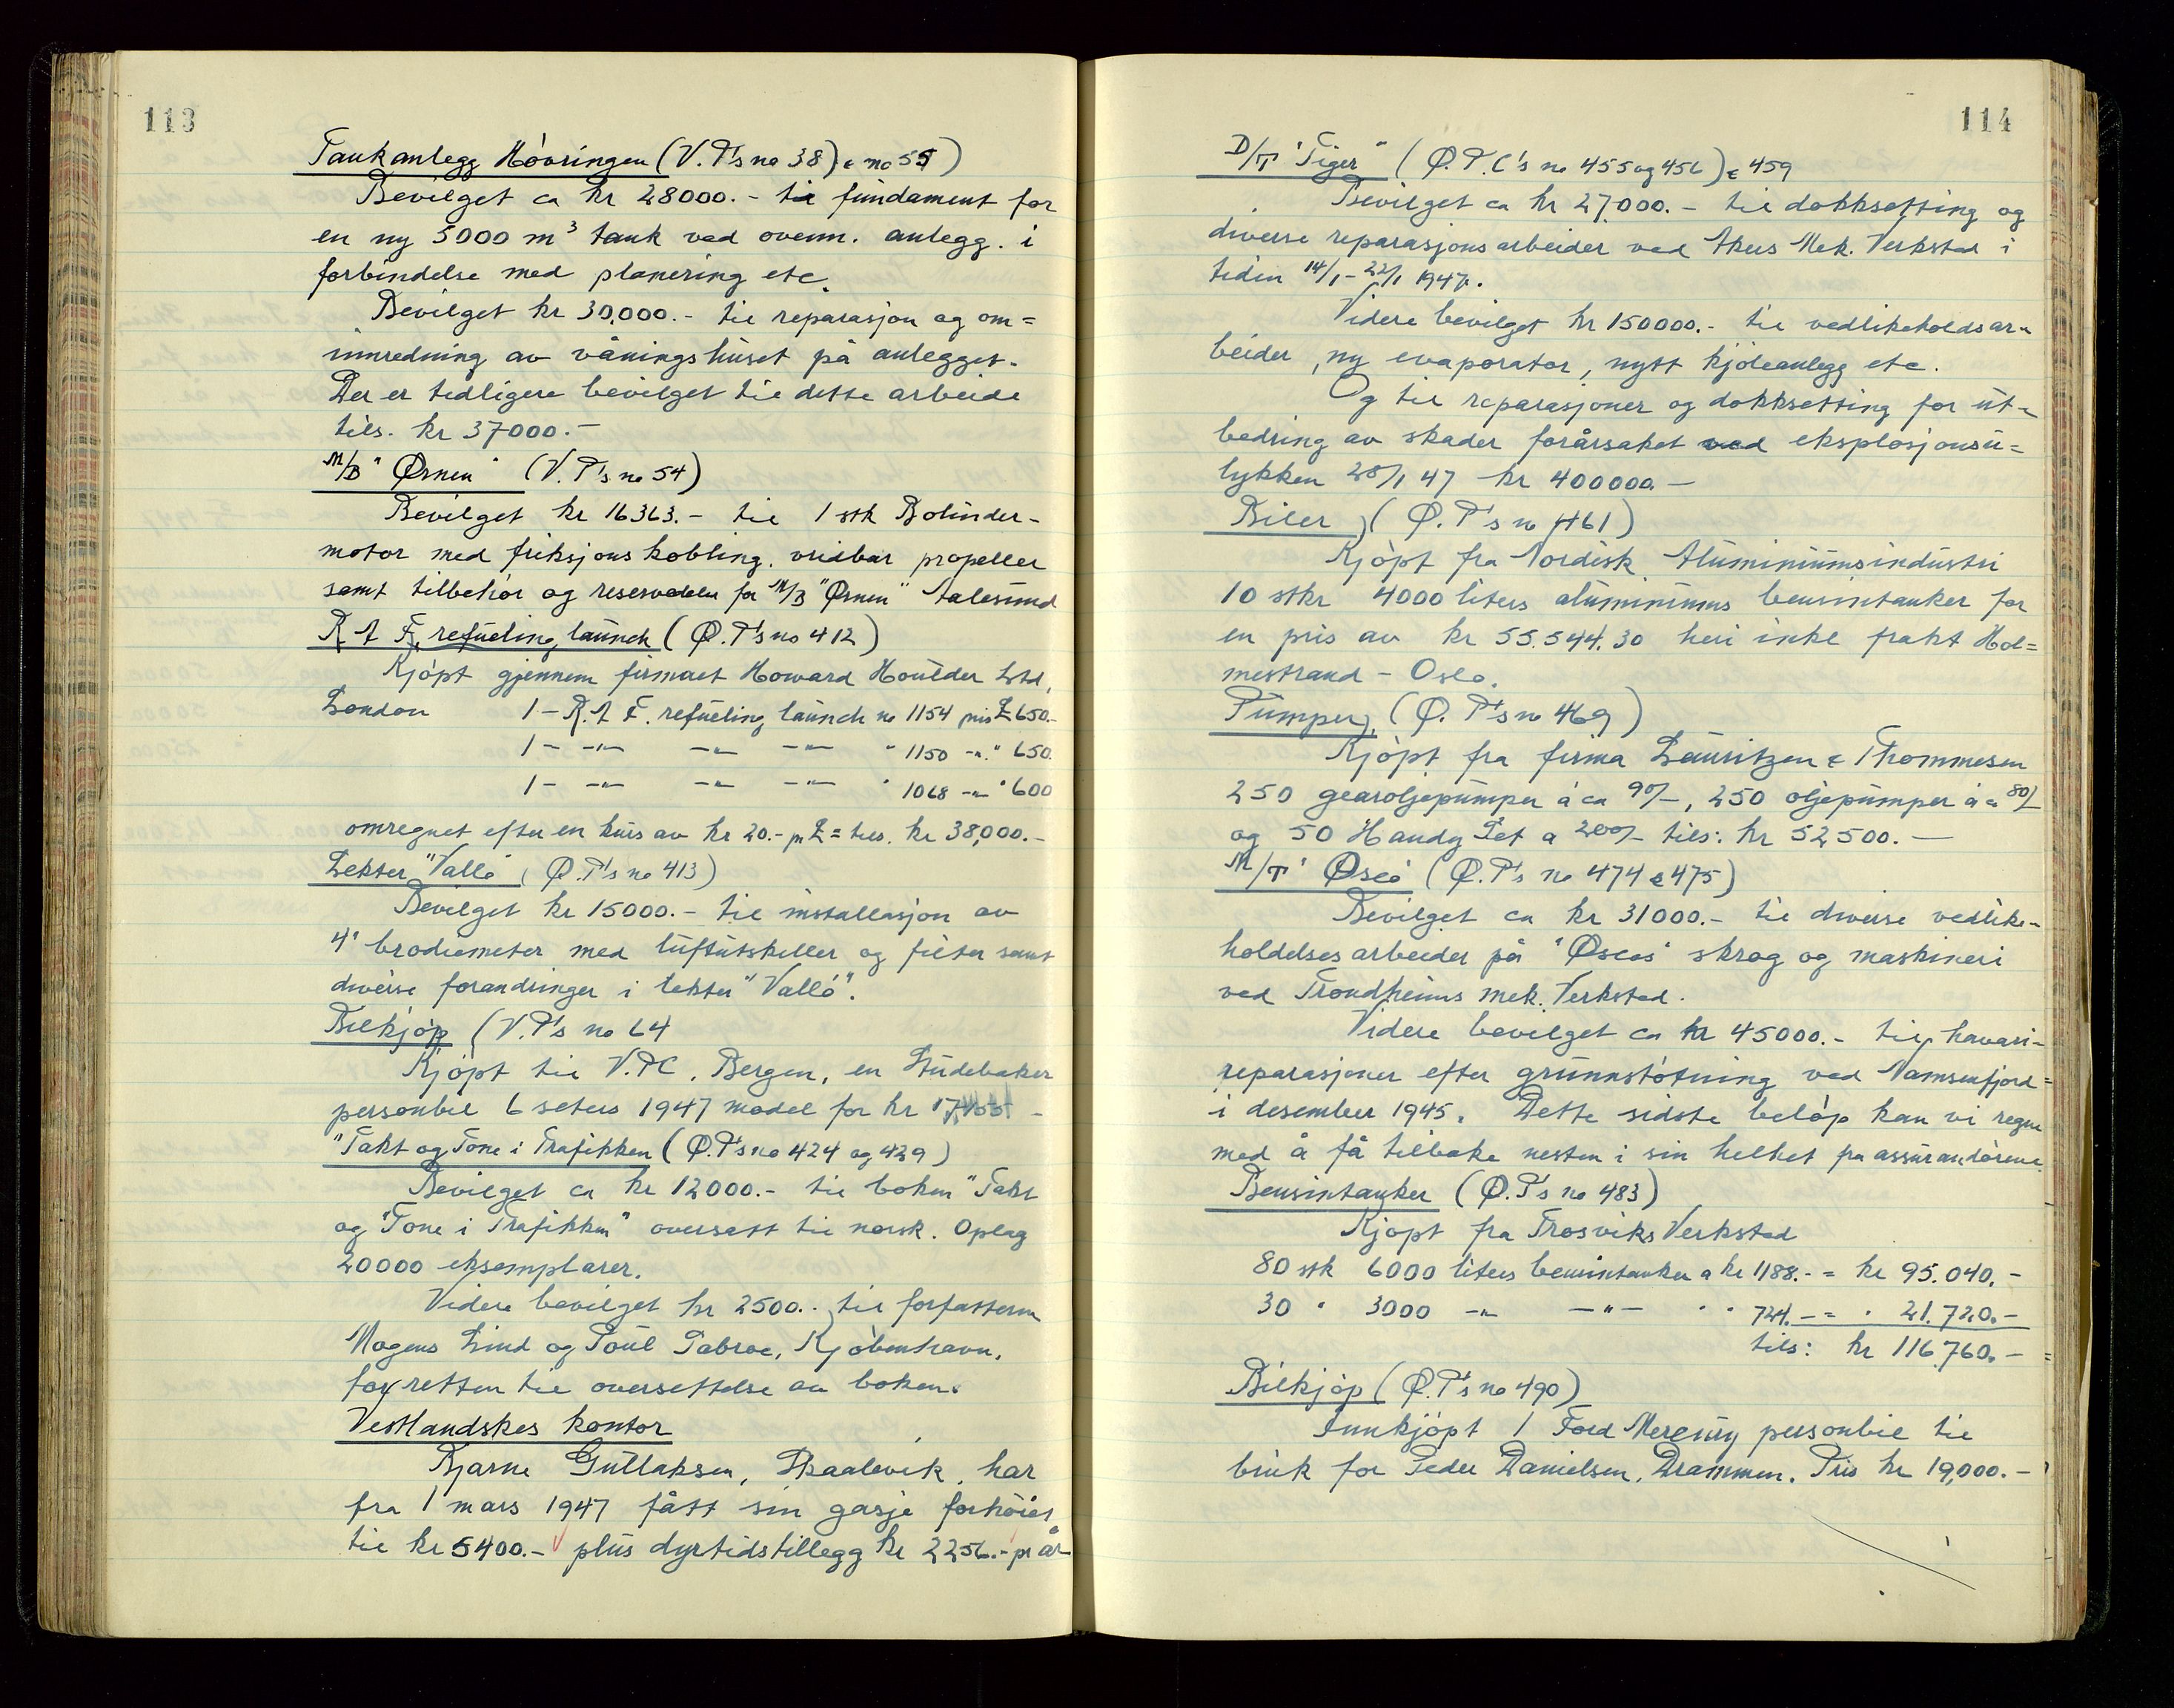 113
Tankanlegg Høvringen (V.P's no 38) & no 55)
Bevilget ca kr 28000.- til fundament for
en ny 5000 m³ tank ved ovenn. anlegg. i
forbindelse med planering etc.
Bevilget kr 30,000.- til reparasjon og om=
innredning av våningshuset på anlegget.
Der er tidligere bevilget til dette arbeide
tils. kr 37000.-
M/B "Ørnen" (V.P's no 54)
Bevilget kr 16363.- til 1 stk Bolinder-
motor med friksjonskobling. vridbar propeller
samt tilbehør og reservedeler for M/B "Ørnen" Aalesund
R.A.F. refueling launch (Ø.P's no 412)
Kjøpt gjennem firmaet Howard Houlder Ltd,
London 1 - R.A.F. refueling launch no 1154 pris £ 650.-
1 - -"- -"- -"- " 1150 -"- " 650.
1 - -"- -"- -"- " 1068 -"- " 600
omregnet efter en kurs av kr 20.- pr £ = tils. kr 38,000.-
Lekter "Vallø" (Ø.P's no 413)
Bevilget kr 15000.- til installasjon av
4" brodiemeter med luftutskiller og filter samt
diverse forandringer i lekter "Vallø".
Bilkjøp (V.P's no 64
Kjøpt til V.P.C, Bergen, en Studebaker
personbil 6 seters 1947 model for kr
"Takt og Tone i Trafikken (Ø.P's no 424 og 429)
Bevilget ca kr 12000.- til boken "Takt
og Tone i Trafikken" oversatt til norsk. Oplag
20000 eksemplarer.
Videre bevilget kr 2500.- til forfatterne
Mogens Lind og Poul Sabroe, Kjøbenhavn,
for retten til oversettelse av boken.
Vestlandskes kontor
Bjarne Gullaksen, Skaalevik, har
fra 1 mars 1947 fått sin gasje forhøiet
til kr 5400.- plus dyrtidstillegg kr 2256.- pr år
114
D/T "Tiger" (Ø.P.C's no 455 og 456) & 459
Bevilget ca kr 27.000.- til dokksetting og
diverse reparasjonsarbeider ved Akers Mek. Verksted i
tiden 14/1 - 22/1 1947.
Videre bevilget kr 150000.- til vedlikeholdsar-
beider, ny evaporator, nytt kjøleanlegg etc.
Og til reparasjoner og dokksetting for ut-
bedring av skader forårsaket ved eksplosjonsu=
lykken 28/1 47 kr 400000.-
Biler (Ø.P's no 461)
Kjøpt fra Nordisk Aluminiumsindustri
10 stkr 4000 liters aluminiums bensintanker for
en pris av kr 55.544.30 heri inkl frakt Hol=
mestrand - Oslo.
Pumper, (Ø.P's no 469)
Kjøpt fra firma Lauritzen & Thommesen
250 gearoljepumper à ca 90/-, 250 oljepumper à ca 80/-
og 50 Handy Set a 200/- tils: kr 52500.-
M/T "Osco" (Ø.P's no 474 & 475)
Bevilget ca kr 31000.- til diverse vedlike-
holdelsesarbeider på "Oscos" skrog og maskineri
ved Trondheims mek. Verksted.
Videre bevilget ca kr 45000.- til havari-
reparasjoner efter grunnstøtning ved Namsenfjord=
i desember 1945. Dette sidste beløp kan vi regne
med å få tilbake nesten i sin helhet fra assurandørene.
Bensintanker (Ø.P's no 483)
Kjøpt fra Trosviks Verksted
80 stk 6000 liters bensintanker a kr 1188.- = kr 95.040.-
30 " 3000 -"- -"- " " 724.- = " 21.720.-
tils: kr 116.760.-
Bilkjøp (Ø.P's no 490)
Innkjøpt 1 Ford Mercury personbil til
bruk for Peder Danielsen, Drammen. Pris kr 19,000.-